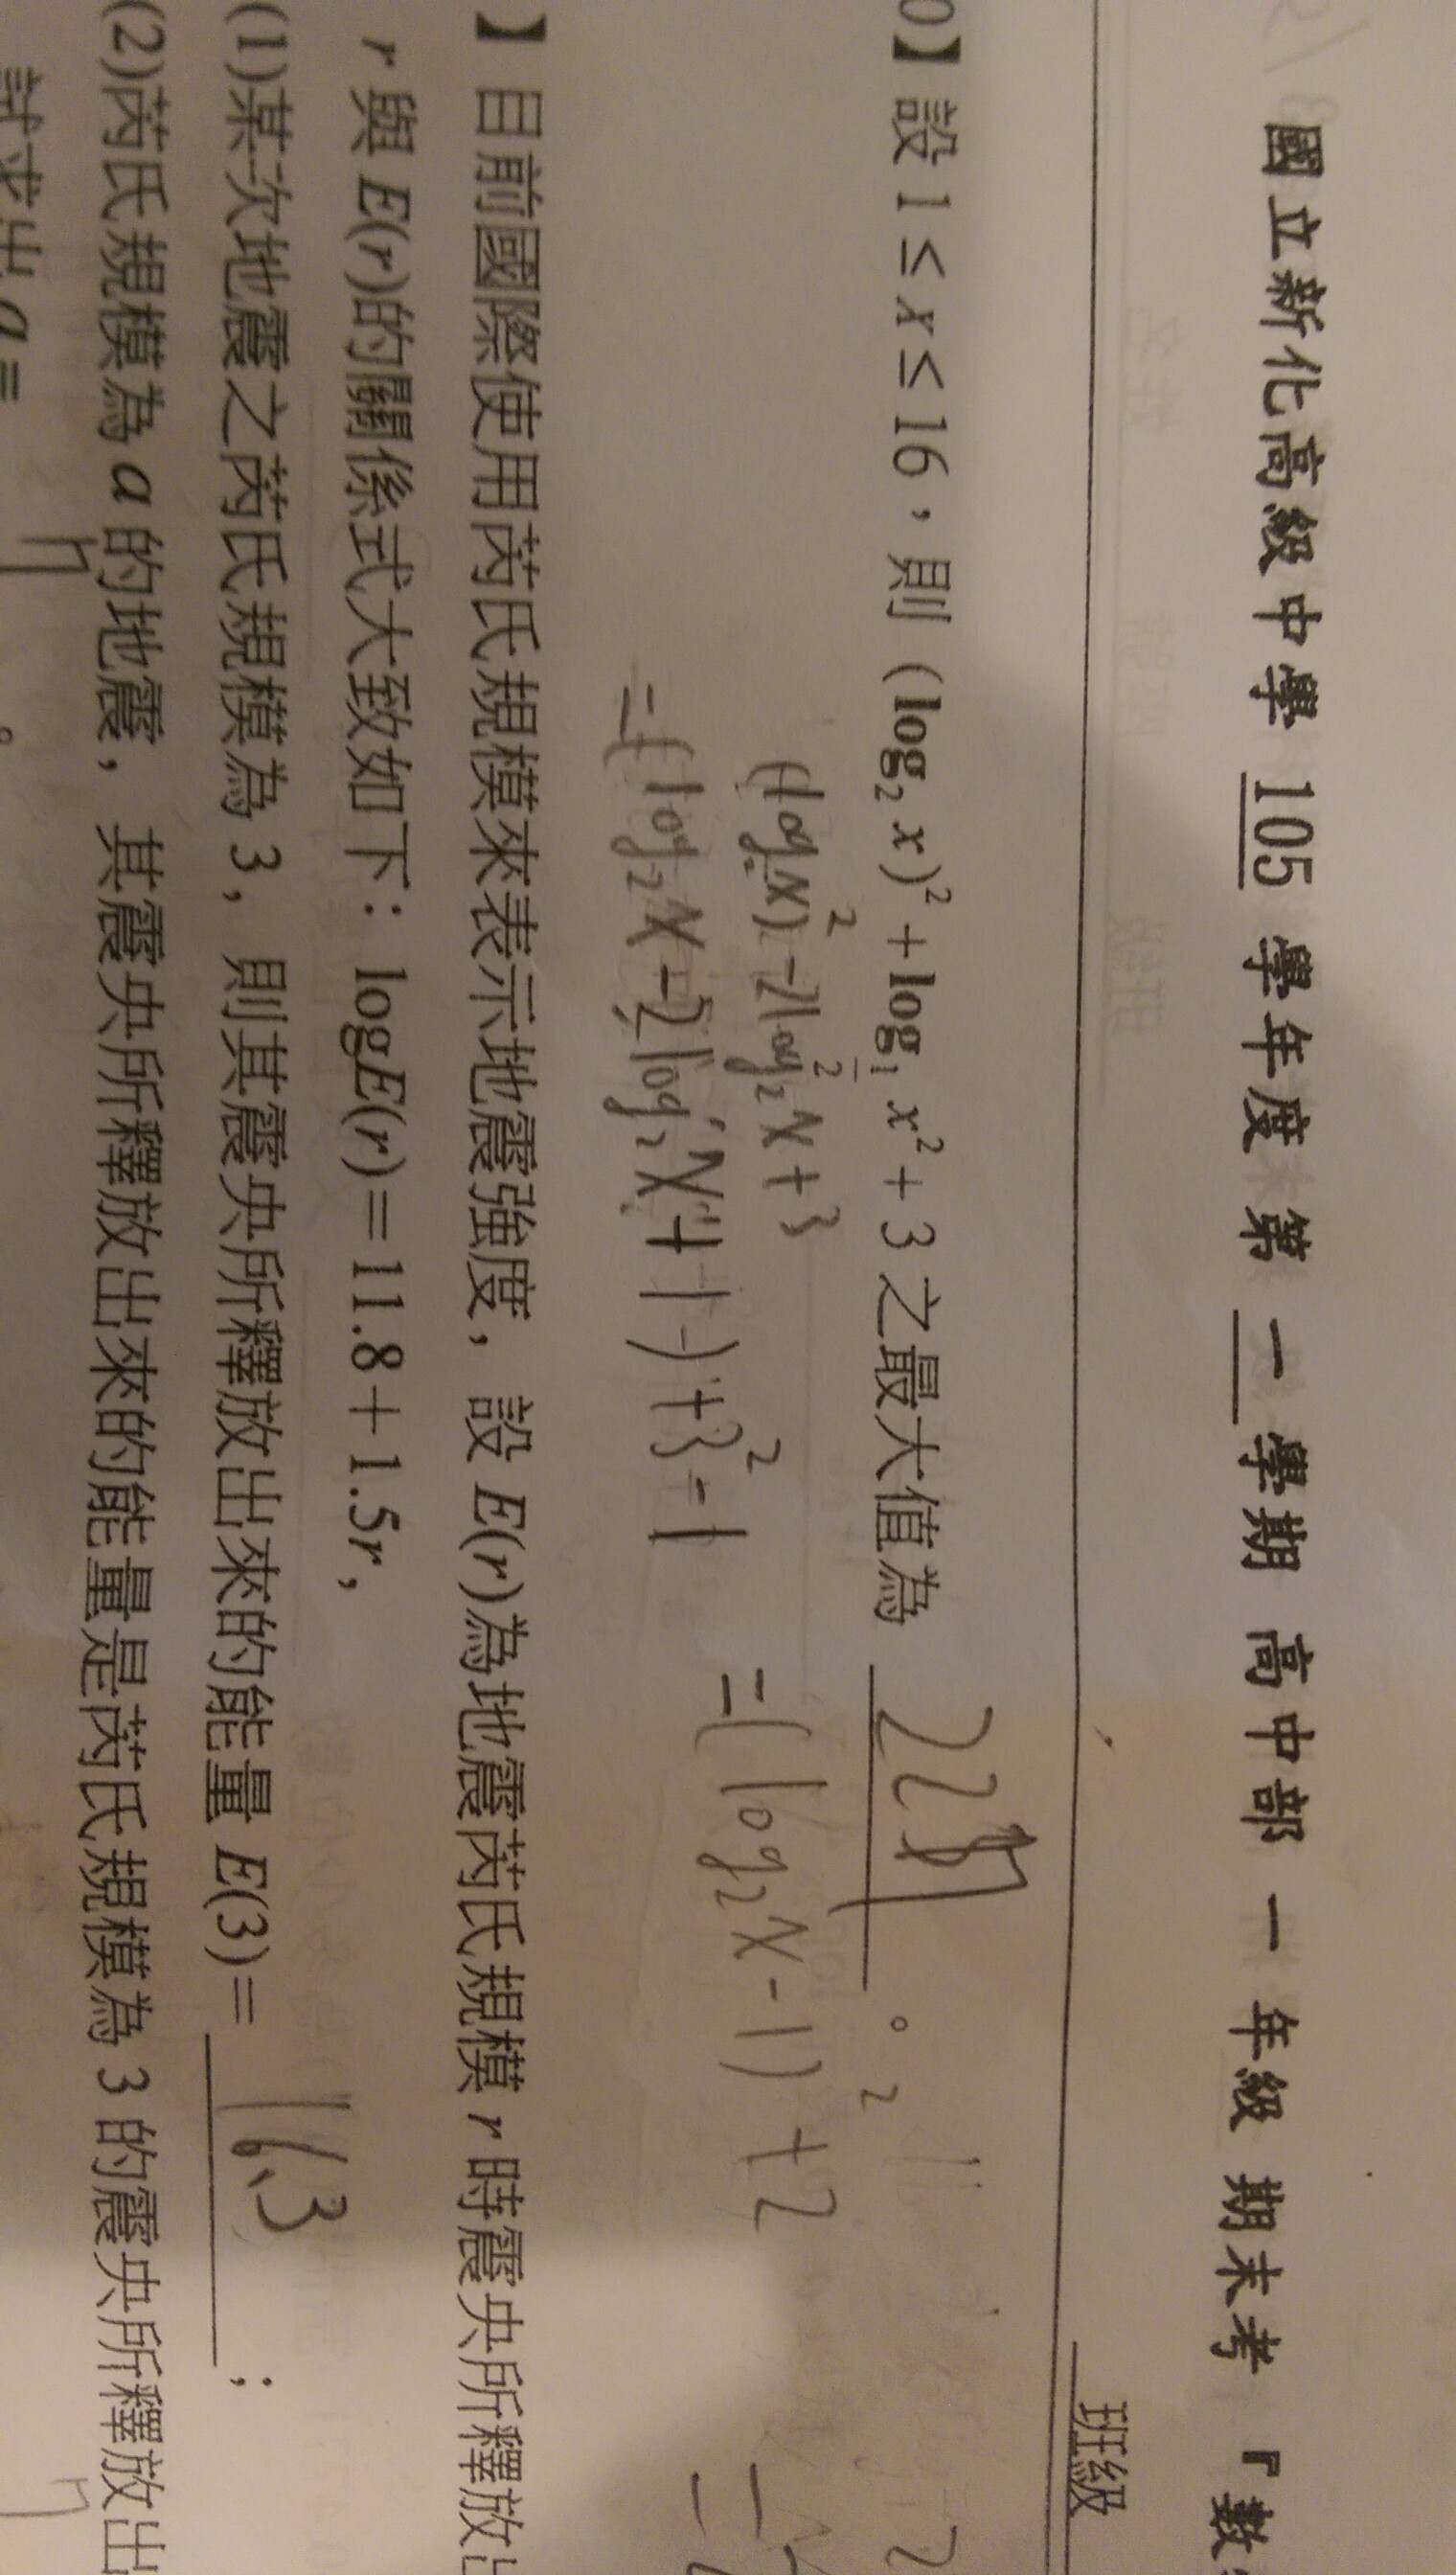 國立新化高級中學 105 學年度第 一 學期 高中部 一 年級 期末考 『數
班級
0】設 1 ≤ x ≤ 16，則 (log₂ x)² + log_{1/2} x² + 3 之最大值為
(log₂x)² - 2log₂x + 3
= (log₂x - 2log₂x + 1) + 3 - 1
= (log₂x - 1)² + 2
】目前國際使用芮氏規模來表示地震強度，設 E(r)為地震芮氏規模 r 時震央所釋放出
r 與 E(r)的關係式大致如下：logE(r) = 11.8 + 1.5r，
(1)某次地震之芮氏規模為 3，則其震央所釋放出來的能量 E(3)= 16.3 ；
(2)芮氏規模為 a 的地震，其震央所釋放出來的能量是芮氏規模為 3 的震央所釋放出
試求出 a =